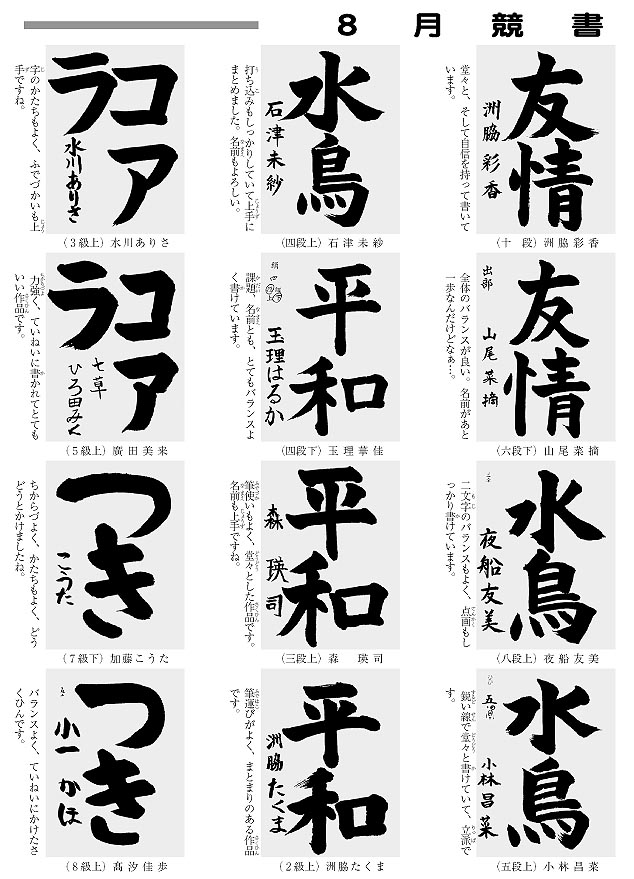 8月競書
友情
洲脇彩香
堂々と、そして自信を持って書いて
います。
(十 段) 洲脇彩香
友情
出部
山尾菜摘
全体のバランスが良い。名前があと
一歩なんだけどなぁ…。
(六段下) 山尾菜摘
水鳥
夜船友美
二文字のバランスもよく、点画もし
っかり書けています。
(八段上) 夜船友美
水鳥
小林昌菜
鋭い線で堂々と書けていて、立派で
す。
(五段上) 小林昌菜
水鳥
石津未紗
打ち込みもしっかりしていて上手に
まとめました。名前もよろしい。
(四段上) 石津未紗
平和
玉理はるか
課題、名前とも、とてもバランスよ
く書けています。
(四段下) 玉理華佳
平和
森瑛司
筆使いもよく、堂々とした作品です。
名前も上手ですね。
(三段上) 森 瑛司
平和
洲脇たくま
筆運びがよく、まとまりのある作品
です。
(2級上) 洲脇たくま
コアラ
水川ありさ
字のかたちもよく、ふでづかいも上
手ですね。
(3級上) 水川ありさ
コアラ
七草
ひろ田みく
力強く、ていねいに書かれてとても
いい作品です。
(5級上) 廣田美来
つき
こうた
ちからづよく、かたちもよく、どう
どうとかけましたね。
(7級下) 加藤こうた
つき
小一 かほ
バランスよく、ていねいにかけたさ
くひんです。
(8級上) 髙汐佳歩